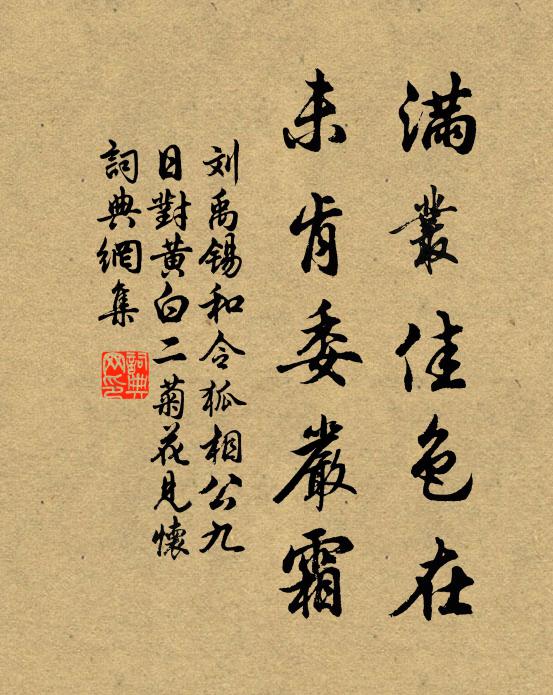 滿叢佳色在
未肯委嚴霜
刘禹锡和令狐相公九
日對黃白二菊花見懷
詞典網集
詞典網印